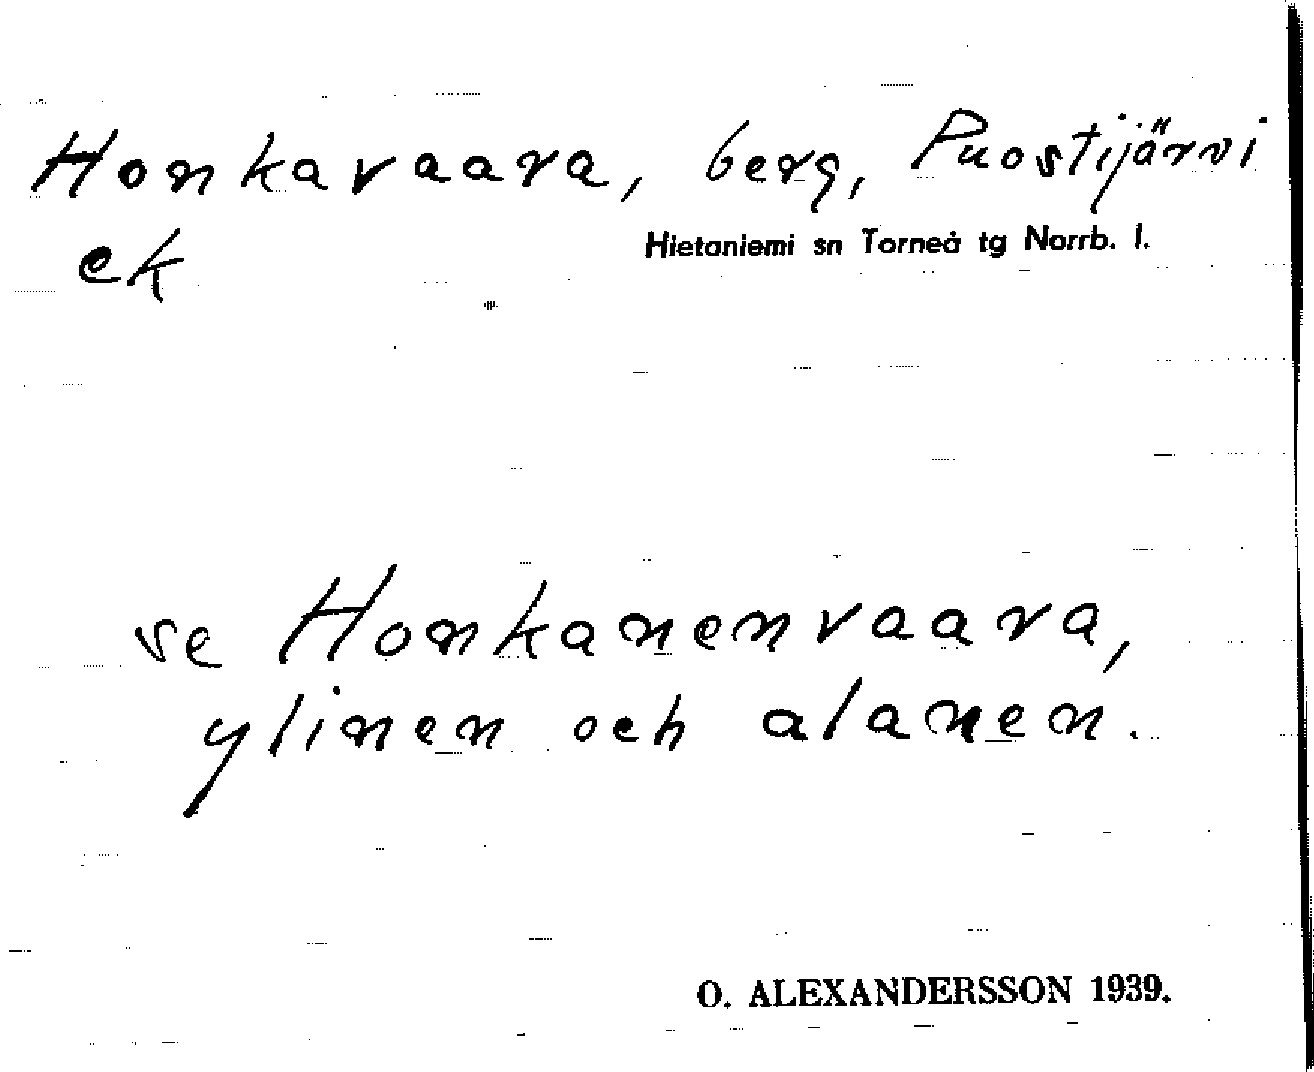 Honkavaara, berg, Puostijärvi
ek
Hietaniemi sn Torneå tg Norrb. l.
se Honkanenvaara,
ylinen och alanen.
O. ALEXANDERSSON 1939.